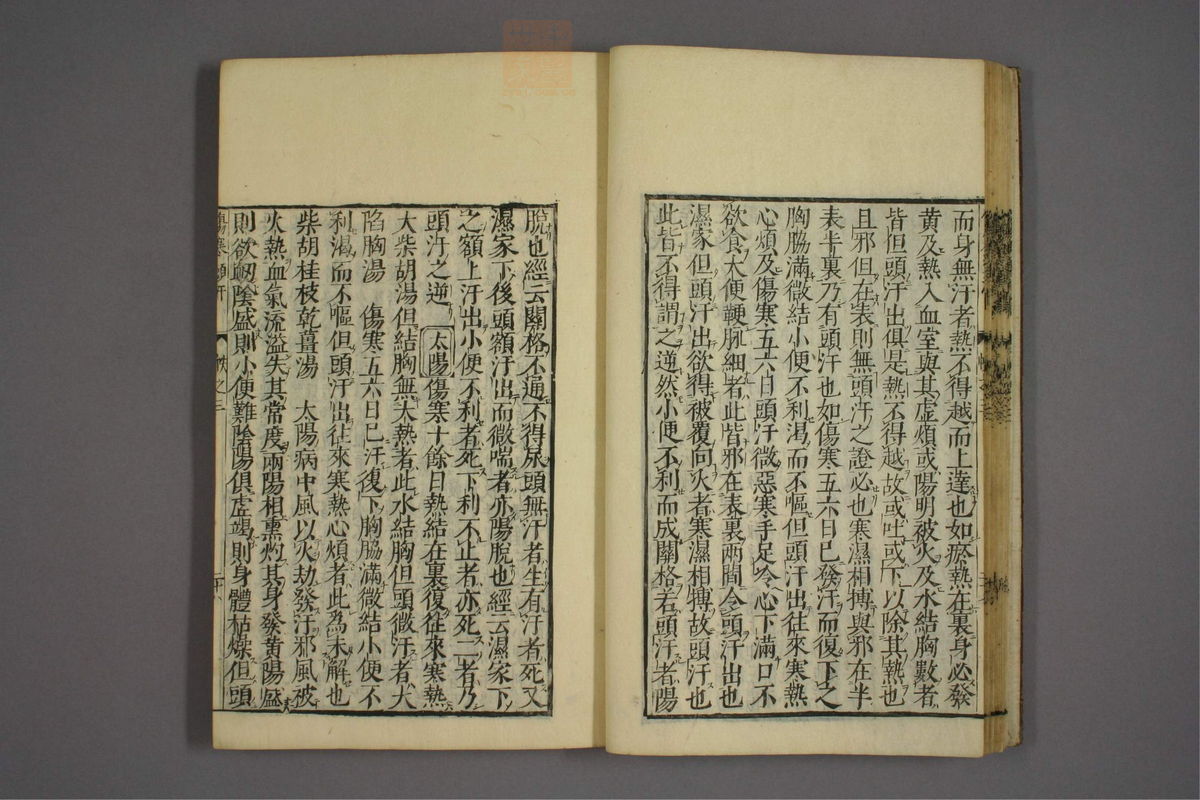 而身無汗者熱不得越而上達也如瘀熱在裏身必發
黄及熱入血室與其虛煩或陽明被火及水結胸數者
皆但頭汗出俱是熱不得越故或吐或下以除其熱也
且邪但在表則無頭汗之證必也寒濕相搏與邪在半
表半裏乃有頭汗也如傷寒五六日已發汗而復下之
胸脇滿微結小便不利渴而不嘔但頭汗出往來寒熱
心煩及傷寒五六日頭汗微惡寒手足冷心下滿口不
欲食大便鞕脉細者此皆邪在表裏兩間令頭汗出也
濕家但頭汗出欲得被覆向火者寒濕相搏故頭汗也
此皆不得謂之逆然小便不利而成關格若頭汗者陽
脫也經云關格不通不得尿頭無汗者生有汗者死又
濕家下後頭額汗出而微喘者亦陽脫也經云濕家下
之額上汗出小便不利者死下利不止者亦死二者乃
頭汗之逆 太陽傷寒十餘日熱結在裏復往來寒熱
大柴胡湯但結胸無大熱者此水結胸但頭微汗者大
陷胸湯 傷寒五六日已汗復下胸脇滿微結小便不
利渴而不嘔但頭汗出往來寒熱心煩者此為未解也
柴胡桂枝乾薑湯 太陽病中風以火劫發汗邪風被
火熱血氣流溢失其常度兩陽相熏灼其身發黄陽盛
則欲衂陰盛則小便難陰陽俱虛竭則身體枯燥但頭
傷寒 頭汗 帙之三